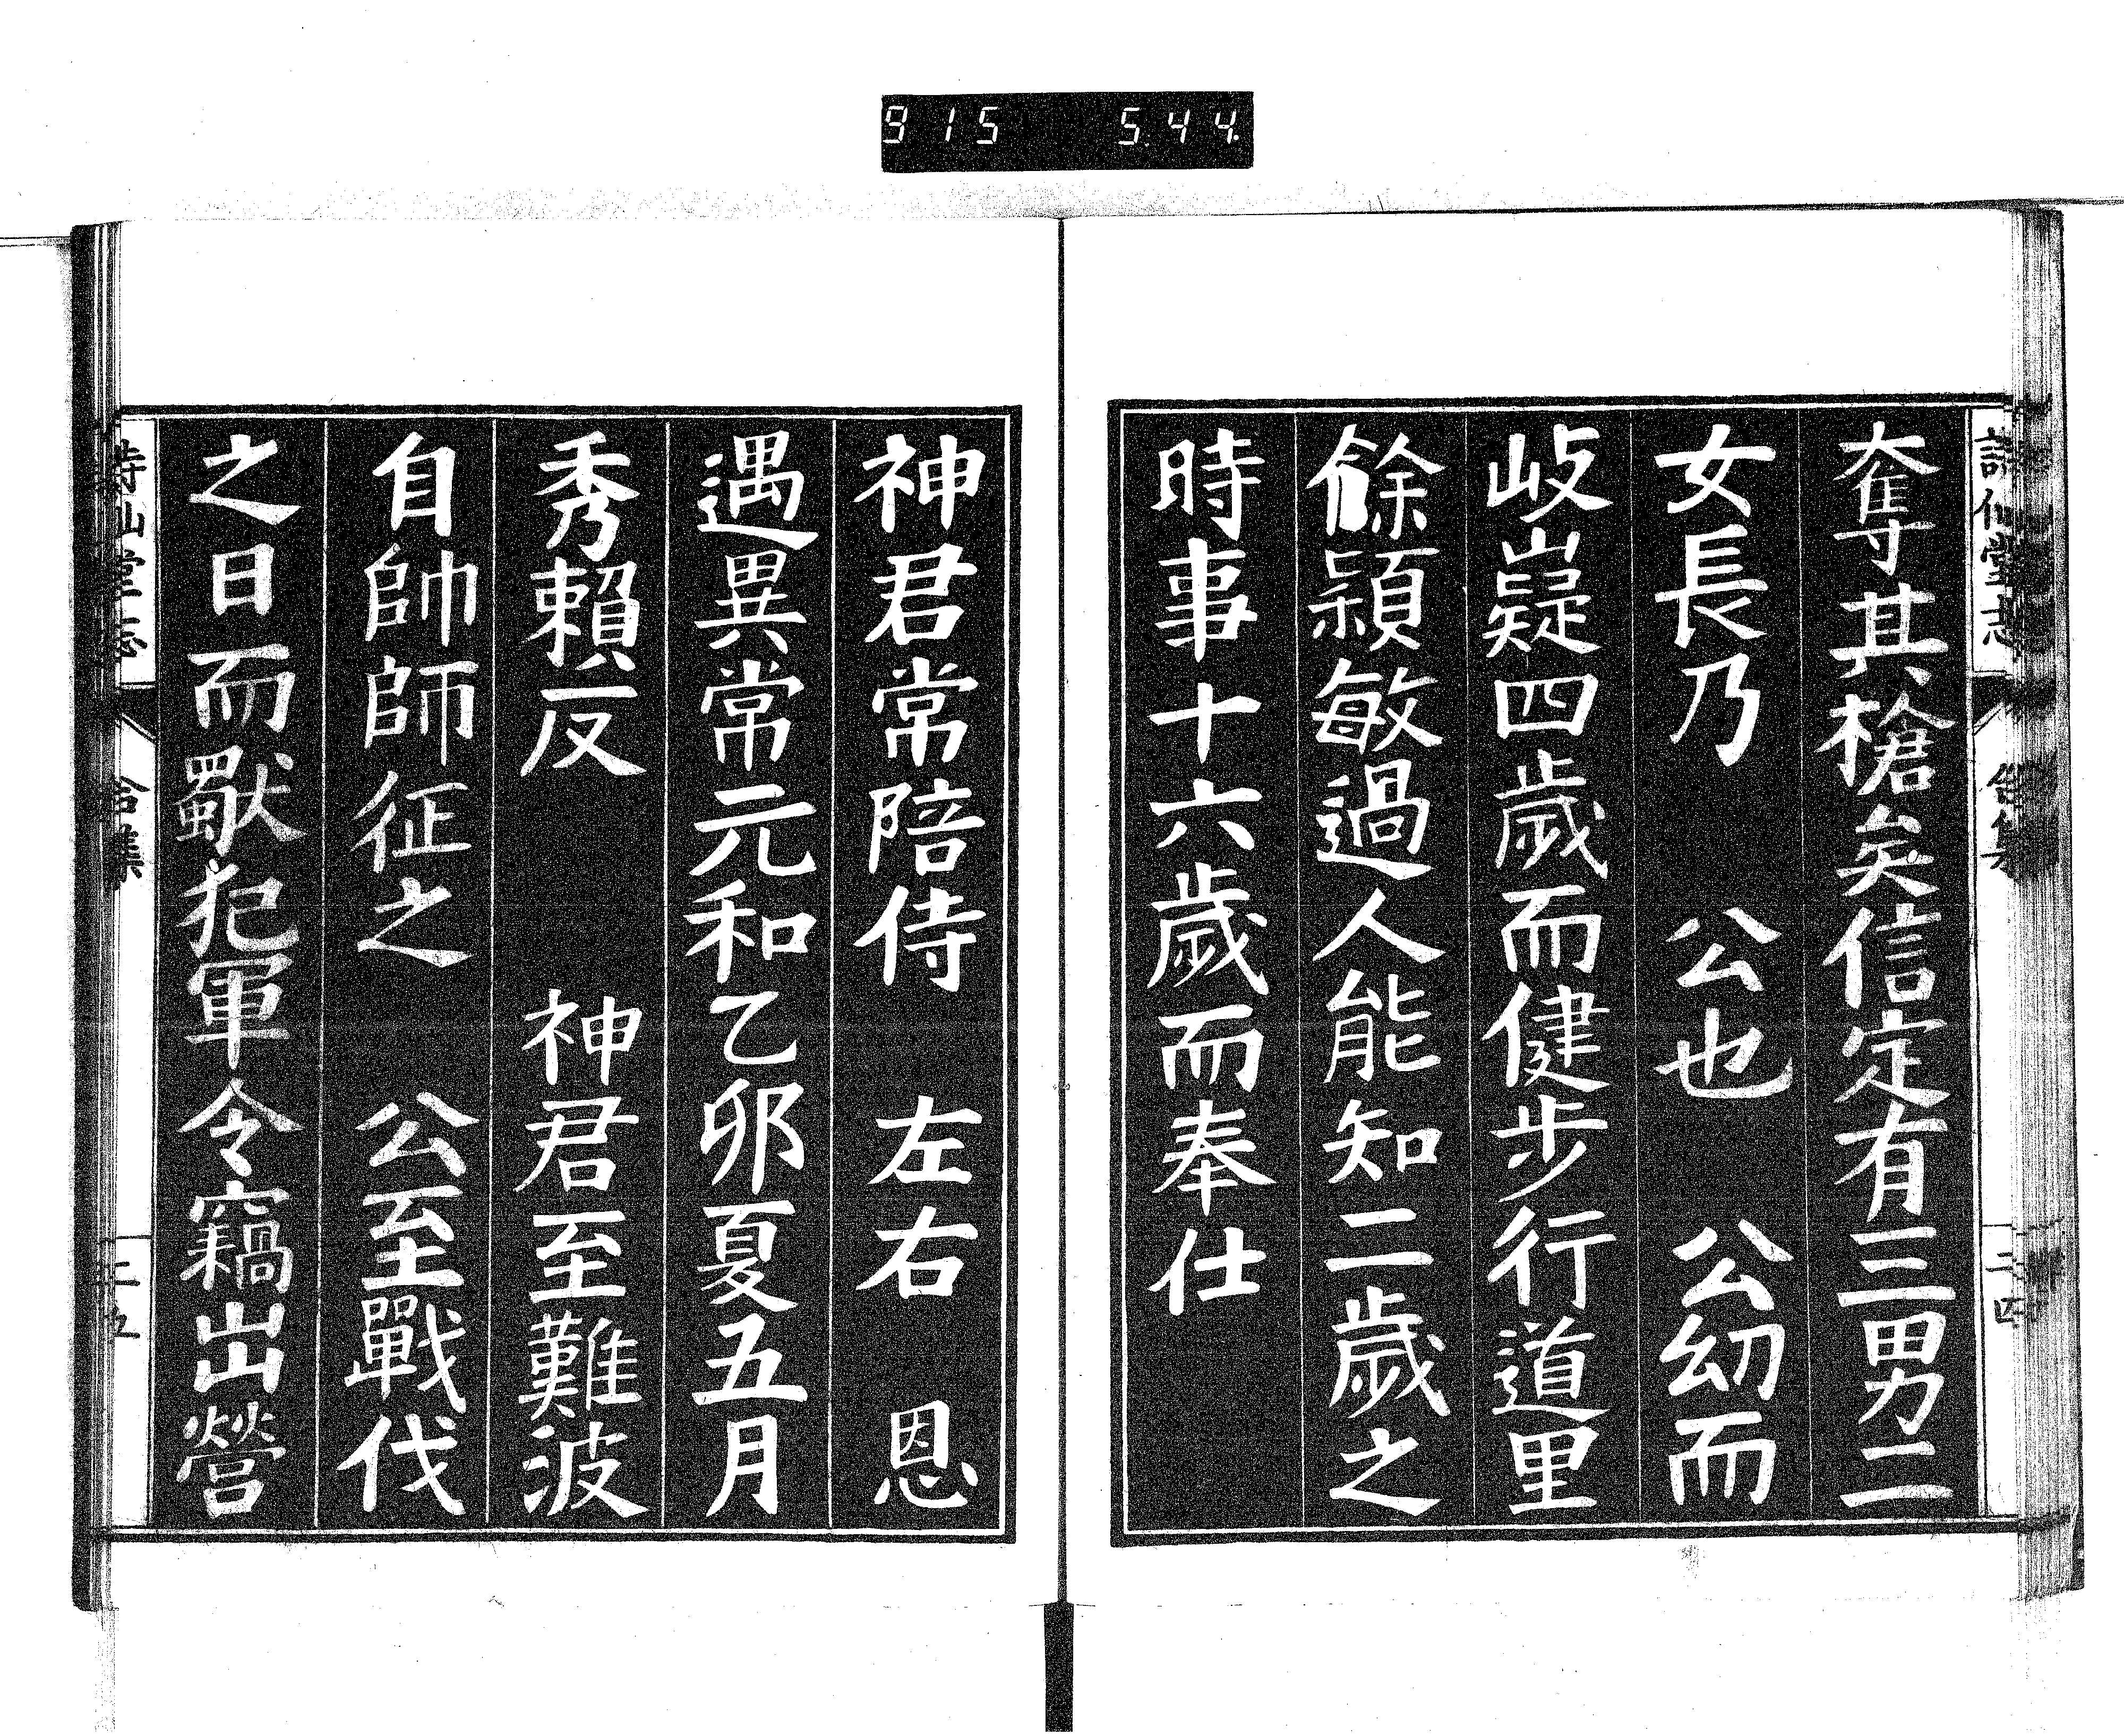 915 5.44.
詩仙堂志
二四
奪其槍矣信定有三男二
女長乃 公也 公幼而
岐嶷四歲而健步行道里
餘穎敏過人能知二歲之
時事十六歲而奉仕
神君常陪侍 左右 恩
遇異常元和乙卯夏五月
秀賴反 神君至難波
自帥師征之 公至戰伐
之日而獸犯軍令竊出營